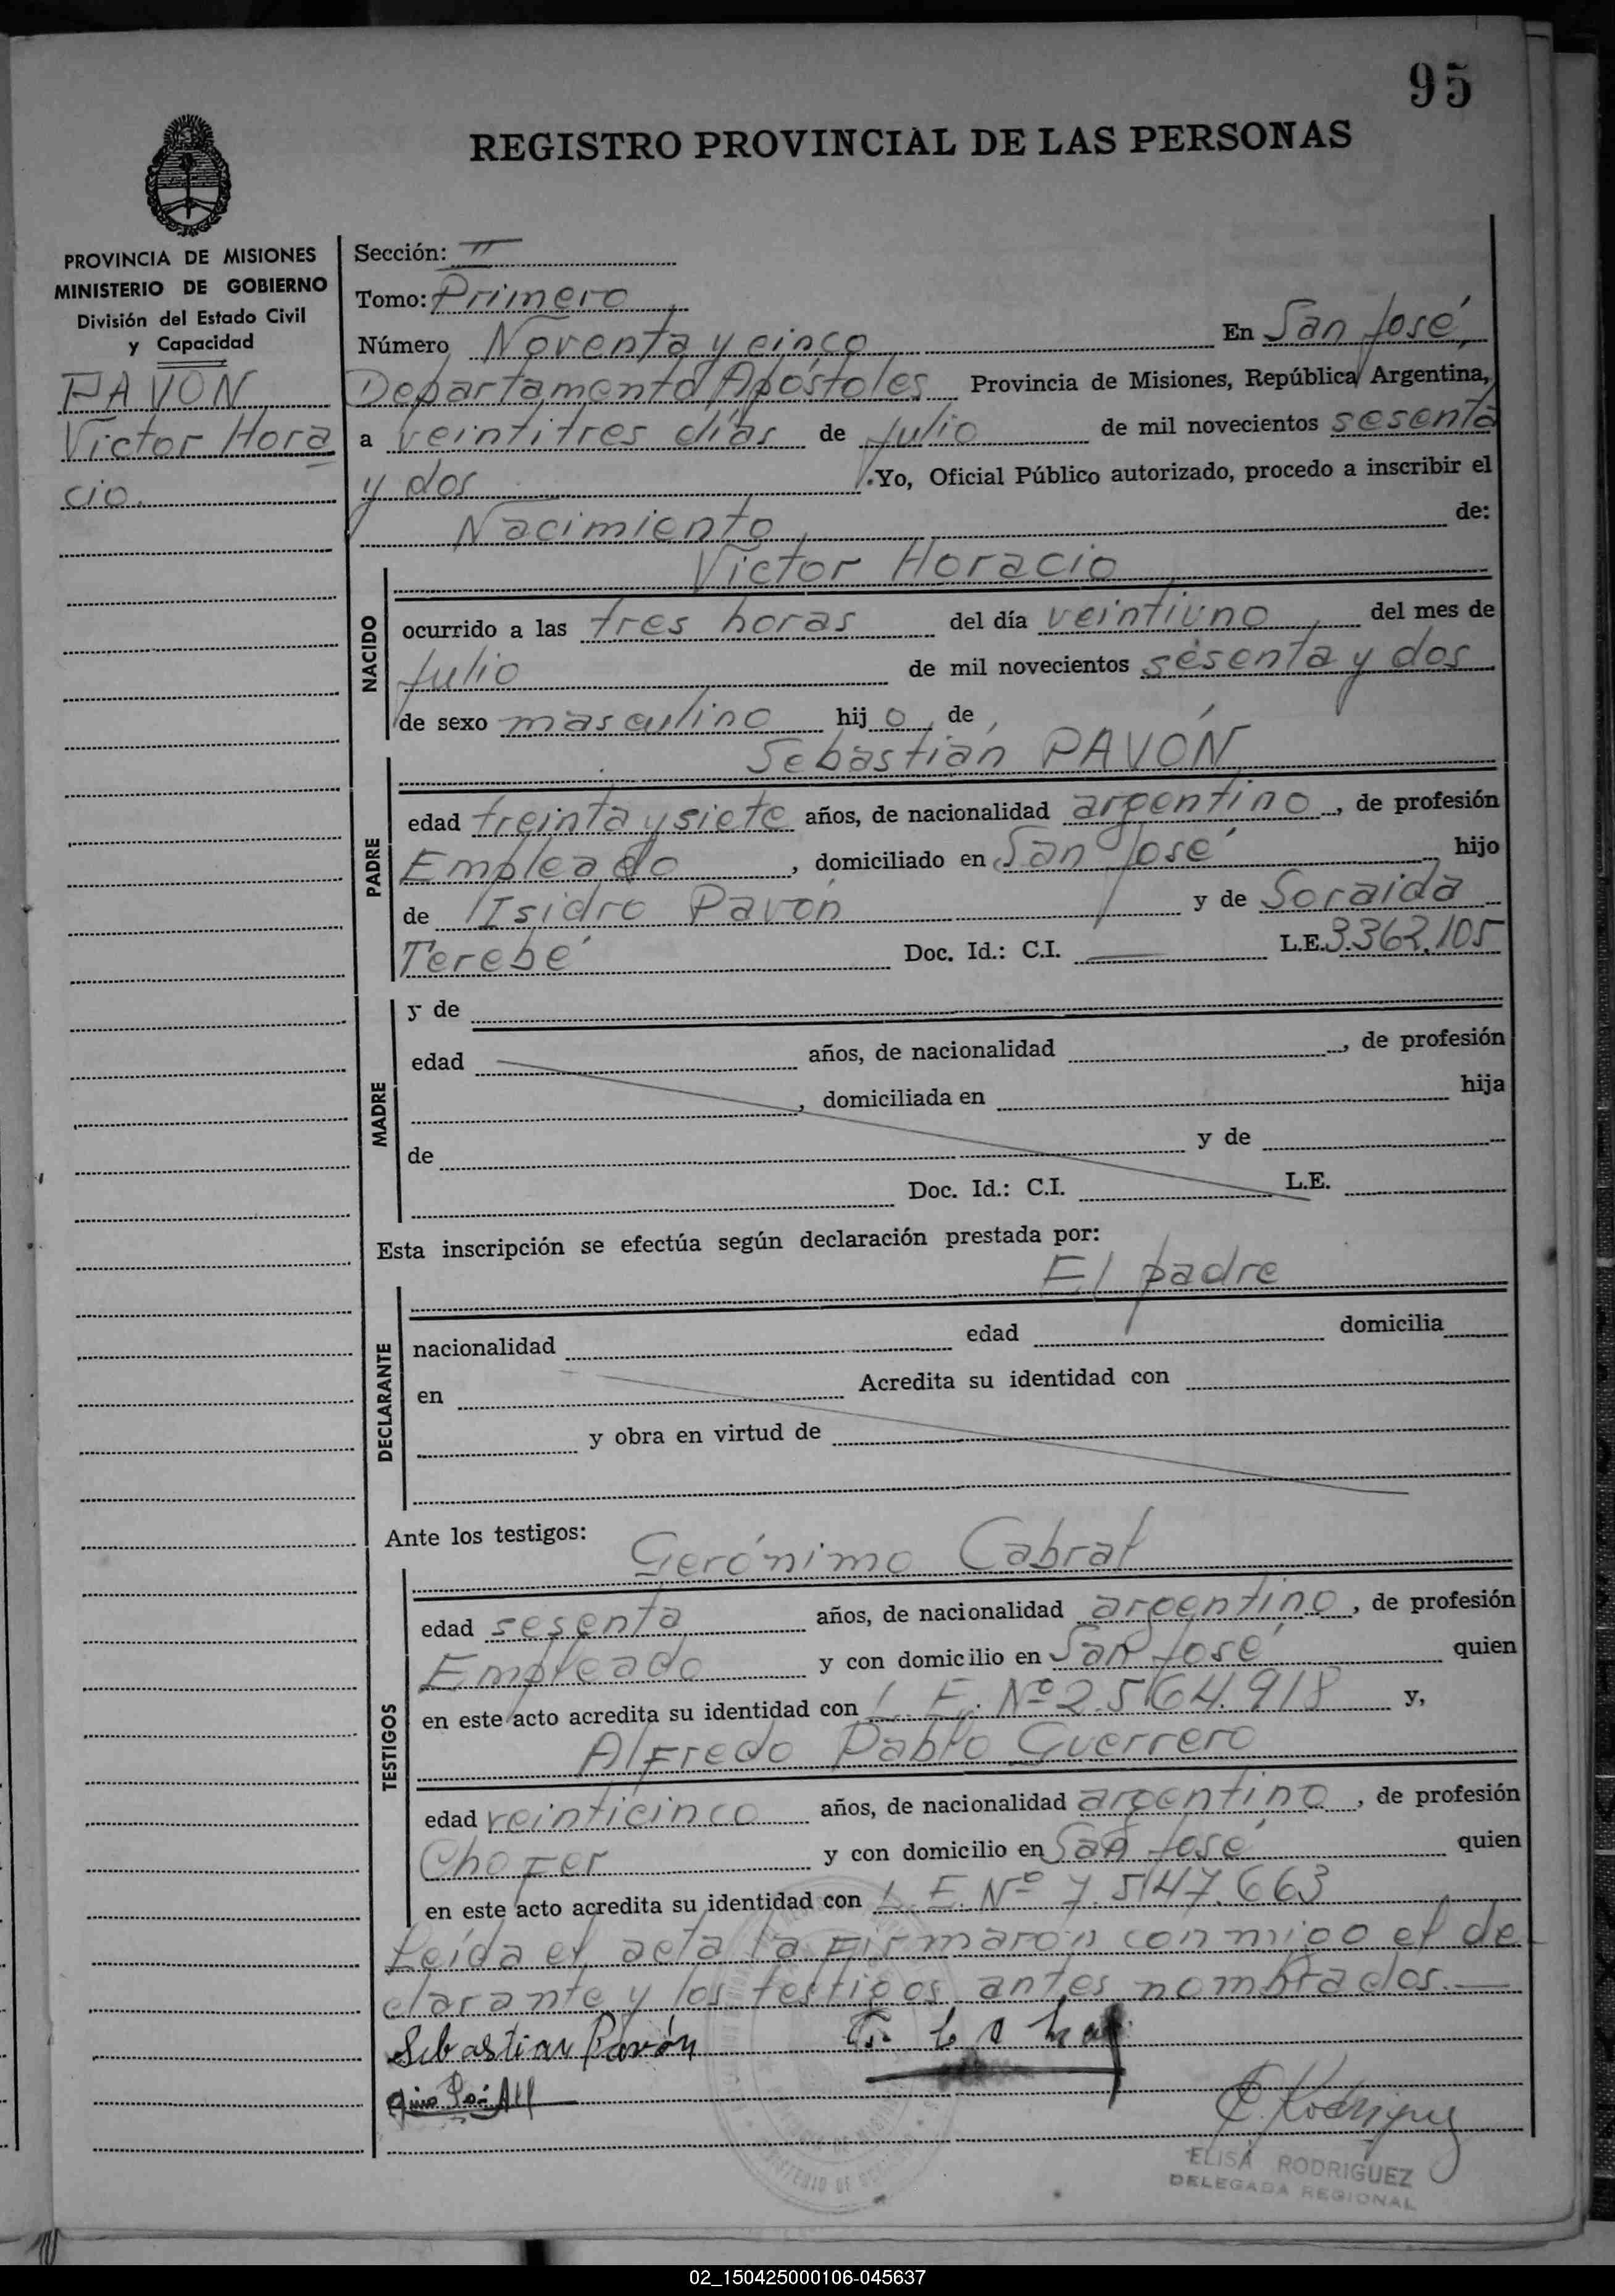 95
REGISTRO PROVINCIAL DE LAS PERSONAS
PROVINCIA DE MISIONES
MINISTERIO DE GOBIERNO
División del Estado Civil
y Capacidad
PAVON
Víctor Hora
cio.
Sección: II
Tomo: Primero
Número Noventa y cinco En San José,
Departamento Apóstoles Provincia de Misiones, República Argentina,
a veintitres días de Julio de mil novecientos sesenta
y dos . Yo, Oficial Público autorizado, procedo a inscribir el
Nacimiento de:
Víctor Horacio
NACIDO
ocurrido a las tres horas del día veintiuno del mes de
Julio de mil novecientos sesenta y dos
de sexo masculino hij o, de
Sebastián PAVÓN
PADRE
edad treinta y siete años, de nacionalidad argentino, de profesión
Empleado, domiciliado en San José hijo
de Isidro Pavón y de Soraida
Terebé Doc. Id.: C.I. — L.E. 3.362.105
MADRE
y de
edad años, de nacionalidad , de profesión
, domiciliada en hija
de y de
Doc. Id.: C.I. L.E.
Esta inscripción se efectúa según declaración prestada por:
El padre
DECLARANTE
nacionalidad edad domicilia
en Acredita su identidad con
y obra en virtud de
Ante los testigos:
Gerónimo Cabral
TESTIGOS
edad sesenta años, de nacionalidad argentino, de profesión
Empleado y con domicilio en San José quien
en este acto acredita su identidad con L. E. Nº 2.564.918 y,
Alfredo Pablo Guerrero
edad veinticinco años, de nacionalidad argentino, de profesión
Chofer y con domicilio en San José quien
en este acto acredita su identidad con L. E. Nº 7.547.663
Leída el acta la firmaron conmigo el de
clarante y los testigos antes nombrados.—
Sebastian Pavón
E. Rodriguez
ELISA RODRIGUEZ
DELEGADA REGIONAL
02_150425000106-045637